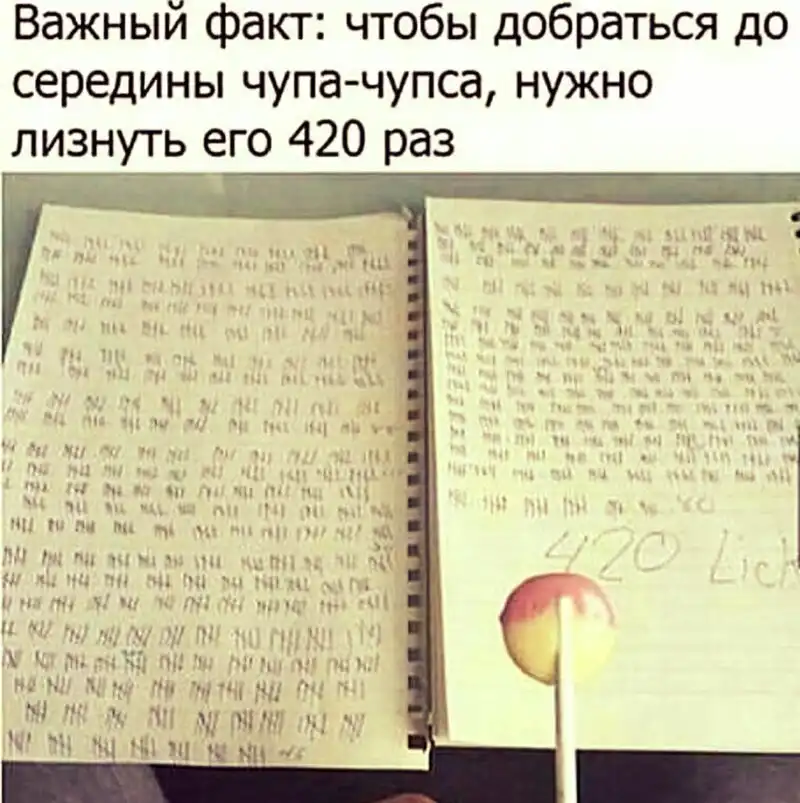 Важный факт: чтобы добраться до
середины чупа-чупса, нужно
лизнуть его 420 раз
420 Lick